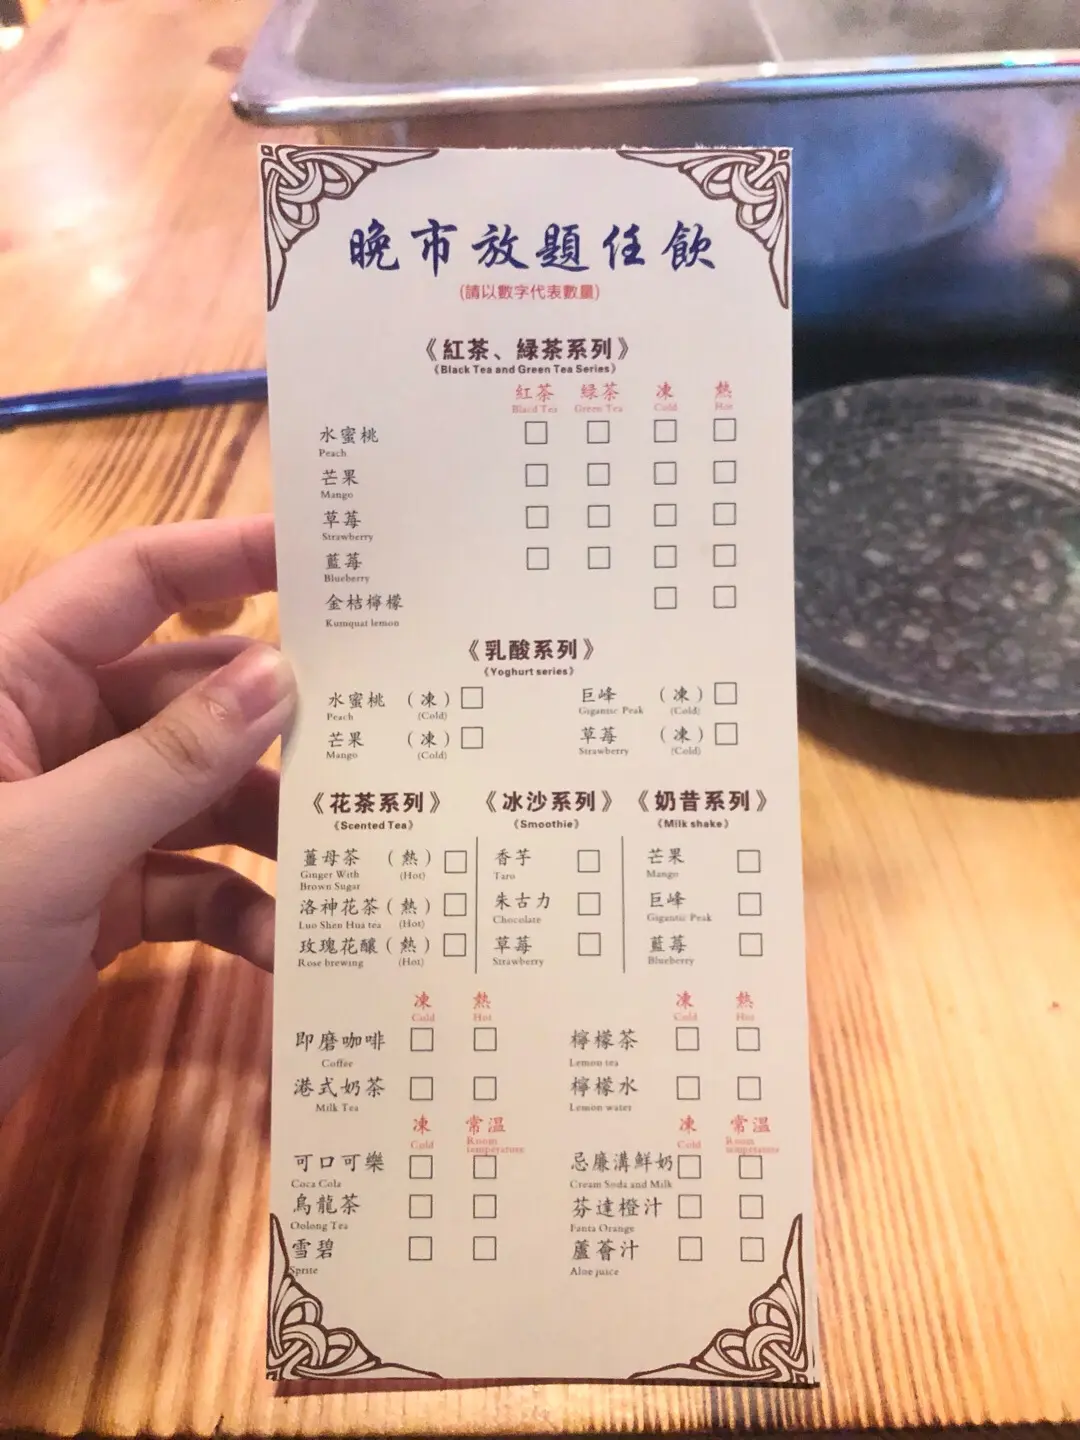 晚市放題任飲
(請以數字代表數量)
《紅茶、緑茶系列》
《Black Tea and Green Tea Series》
紅茶 緑茶 凍 熱
Blacd Tea Green Tea Cold Hot
水蜜桃
Peach
芒果
Mango
草莓
Strawberry
藍莓
Blueberry
金桔檸檬
Kumquat lemon
《乳酸系列》
《Yoghurt series》
水蜜桃 (凍) 巨峰 (凍)
Peach (Cold) Gigantic Peak (Cold)
芒果 (凍) 草莓 (凍)
Mango (Cold) Strawberry (Cold)
《花茶系列》 《冰沙系列》 《奶昔系列》
《Scented Tea》 《Smoothie》 《Milk shake》
薑母茶 (熱) 香芋 芒果
Ginger With (Hot) Taro Mango
Brown Sugar
洛神花茶 (熱) 朱古力 巨峰
Luo Shen Hua tea (Hot) Chocolate Gigantic Peak
玫瑰花釀 (熱) 草莓 藍莓
Rose brewing (Hot) Strawberry Blueberry
凍 熱 凍 熱
Cold Hot Cold Hot
即磨咖啡 檸檬茶
Coffee Lemon tea
港式奶茶 檸檬水
Milk Tea Lemon water
凍 常温 凍 常温
Cold Room temperature Cold Room temperature
可口可樂 忌廉溝鮮奶
Coca Cola Cream Soda and Milk
烏龍茶 芬達橙汁
Oolong Tea Fanta Orange
雪碧 蘆薈汁
Sprite Aloe juice